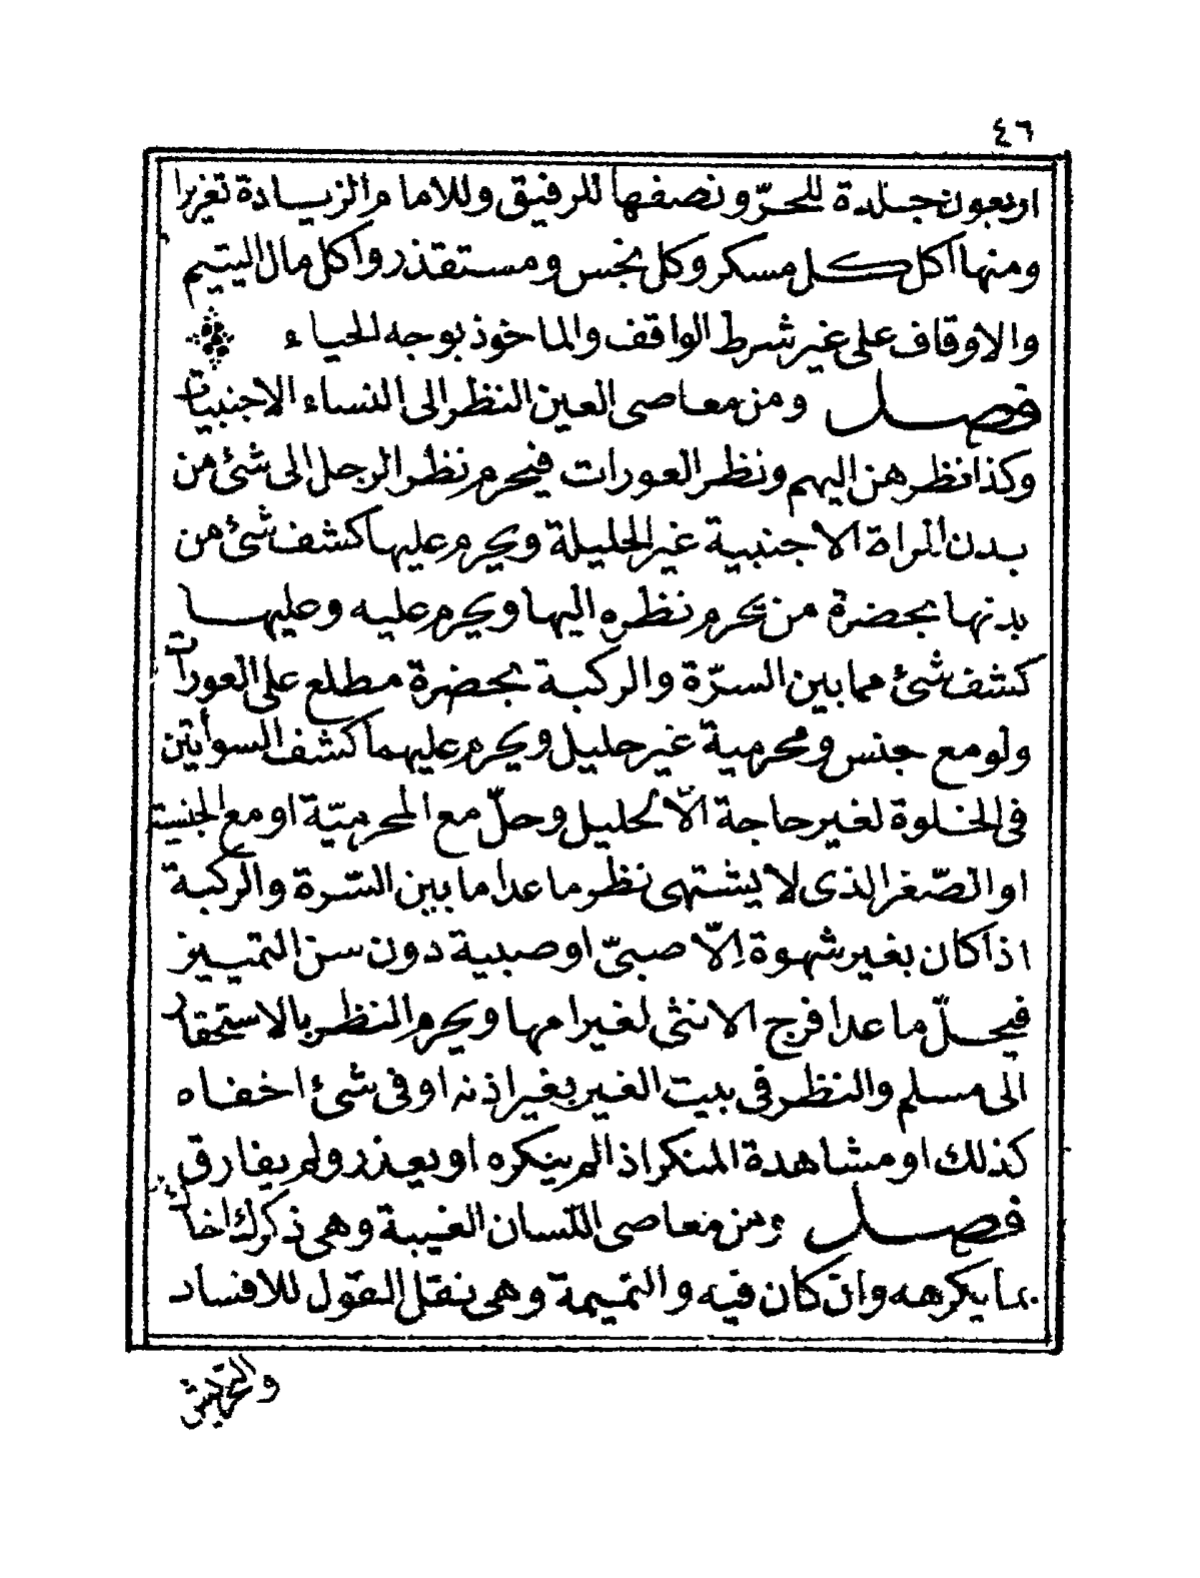 ٤٦
اربعون جلدة للحرّ ونصفها للرفيق وللامام الزيادة تغزيرا
ومنها اكل كل مسكر وكل نجس ومستقذر واكل مال اليتيم
والاوقاف على غير شرط الواقف والماخوذ بوجه الحياء
فصل ومن معاصى العين النظر الى النساء الاجنبيات
وكذا نظرهن اليهم ونظر العورات فيحرم نظر الرجل الى شئ من
بدن المراة الاجنبية غير الحليلة ويحرم عليها كشف شئ من
بدنها بحضرة من يحرم نظره اليها ويحرم عليه وعليها
كشف شئ مما بين السرّة والركبة بحضرة مطلع على العورات
ولو مع جنس ومحرمية غير حليل ويحرم عليهما كشف السوأيتن
فى الخلوة لغير حاجة الاّ لحليل وحلّ مع المحرميّة او مع الجنسية
او الصّغر الذى لا يشتهى نظر ما عدا ما بين السّرة والركبة
اذا كان بغير شهوة الاّ صبىّ او صبية دون سن التمييز
فيحلّ ما عدا فرج الانثى لغير امها ويحرم النظر بالاستحقار
الى مسلم والنظر فى بيت الغير بغير اذنه او فى شئ اخفاه
كذلك او مشاهدة المنكر اذا لم ينكره او يعذر ولم يفارق
فصل ومن معاصى اللّسان الغيبة وهى ذكرك اخاك
بما يكرهه وان كان فيه والنميمة وهى نقل القول للافساد
والتحريش